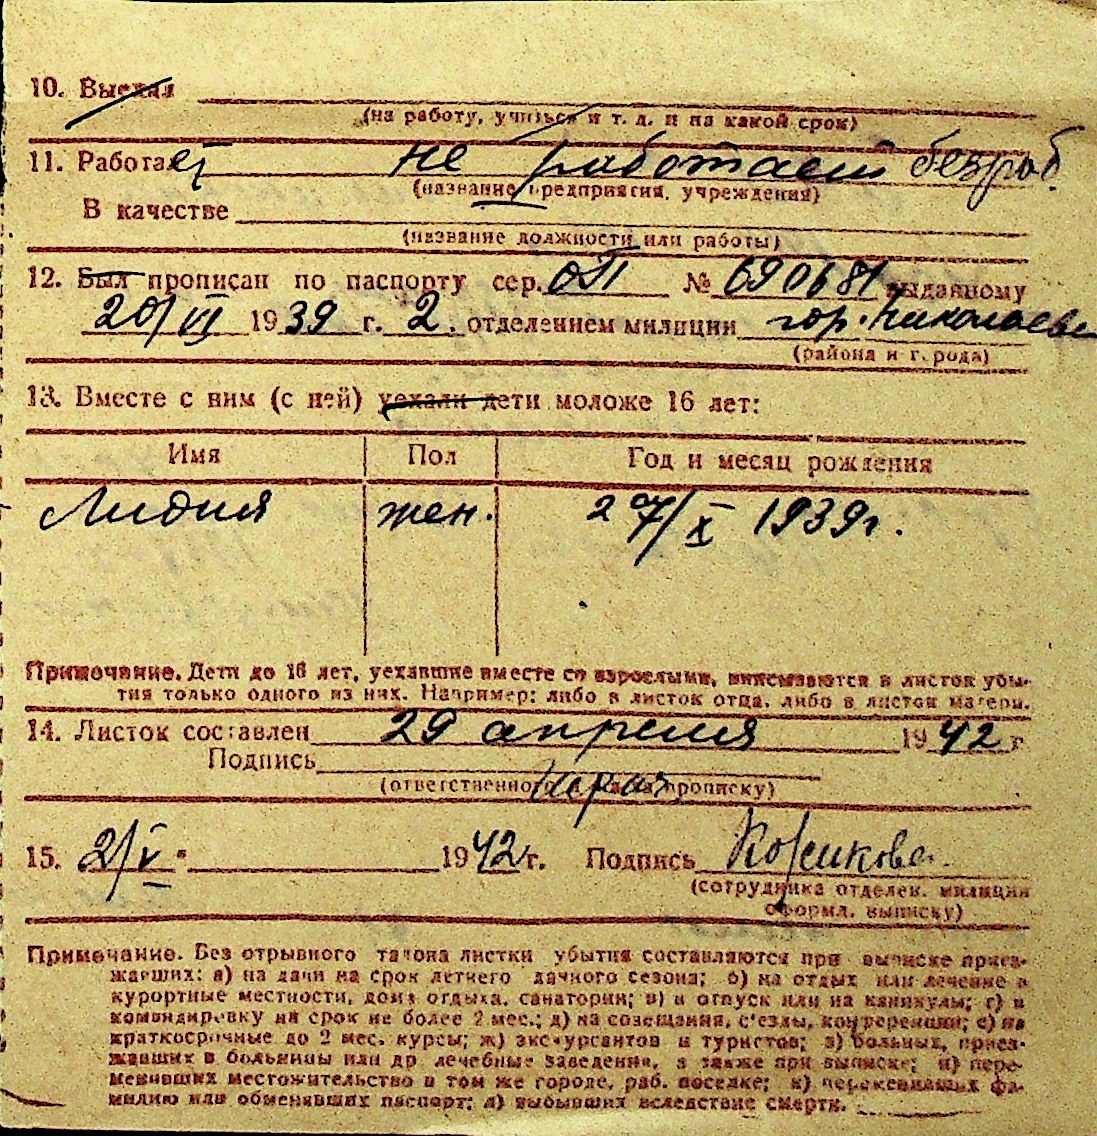 10. Выехал
(на работу, учиться и т. д. и на какой срок)
11. Работает не работает безраб.
(название предприятия, учреждения)
В качестве
(название должности или работы)
12. Был прописан по паспорту сер. № 690681 выданному
20/VI 1939 г. 2. отделением милиции гор. Николаева
(района и города)
13. Вместе с ним (с ней) уехали дети моложе 16 лет:
Имя Пол Год и месяц рождения
Лидия жен. 27/X 1939г.
Примечание. Дети до 16 лет, уехавшие вместе со взрослыми, вписываются в листок убы-
тия только одного из них. Например: либо в листок отца, либо в листок матери.
14. Листок составлен 29 апреля 1942 г
Подпись
(ответственного за прописку)
15. 2/V 1942 г. Подпись
(сотрудника отделен. милиции
оформл. выписку)
Примечание. Без отрывного талона листки убытия составляются при выписке приез-
жавших: а) на дачи на срок летнего дачного сезона; б) на отдых или лечение в
курортные местности, дома отдыха, санатории; в) в отпуск или на каникулы; г) в
командировку на срок не более 2 мес.; д) на совещания, с'езды, конференции; е) на
краткосрочные до 2 мес. курсы; ж) экскурсантов и туристов; з) больных, приез-
жавших в больницы или др лечебные заведения, а также при выписке; и) пере-
менивших местожительство в том же городе, раб. поселке; к) переменивших фа-
милию или обменявших паспорт; л) выбывших вследствие смерти.